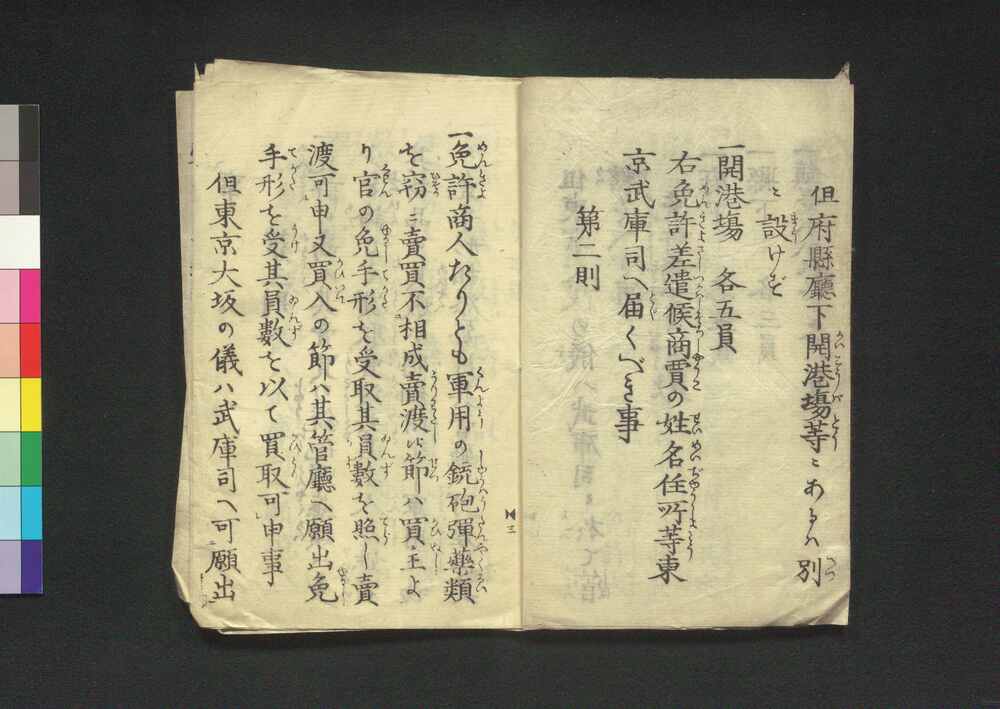 但府縣廳下開港塲等ニあるハ別
ニ設けず
一開港塲　各五員
右免許差遣候商賈の姓名住所等東
京武庫司へ届くべき事
第二則
三
一免許商人たりとも軍用の銃砲彈藥類
を窃ニ賣買不相成賣渡の節ハ買主よ
り官の免手形を受取其員數を照し賣
渡可申又買入の節ハ其管廳へ願出免
手形を受其員數を以て買取可申事
但東京大坂の儀ハ武庫司へ可願出